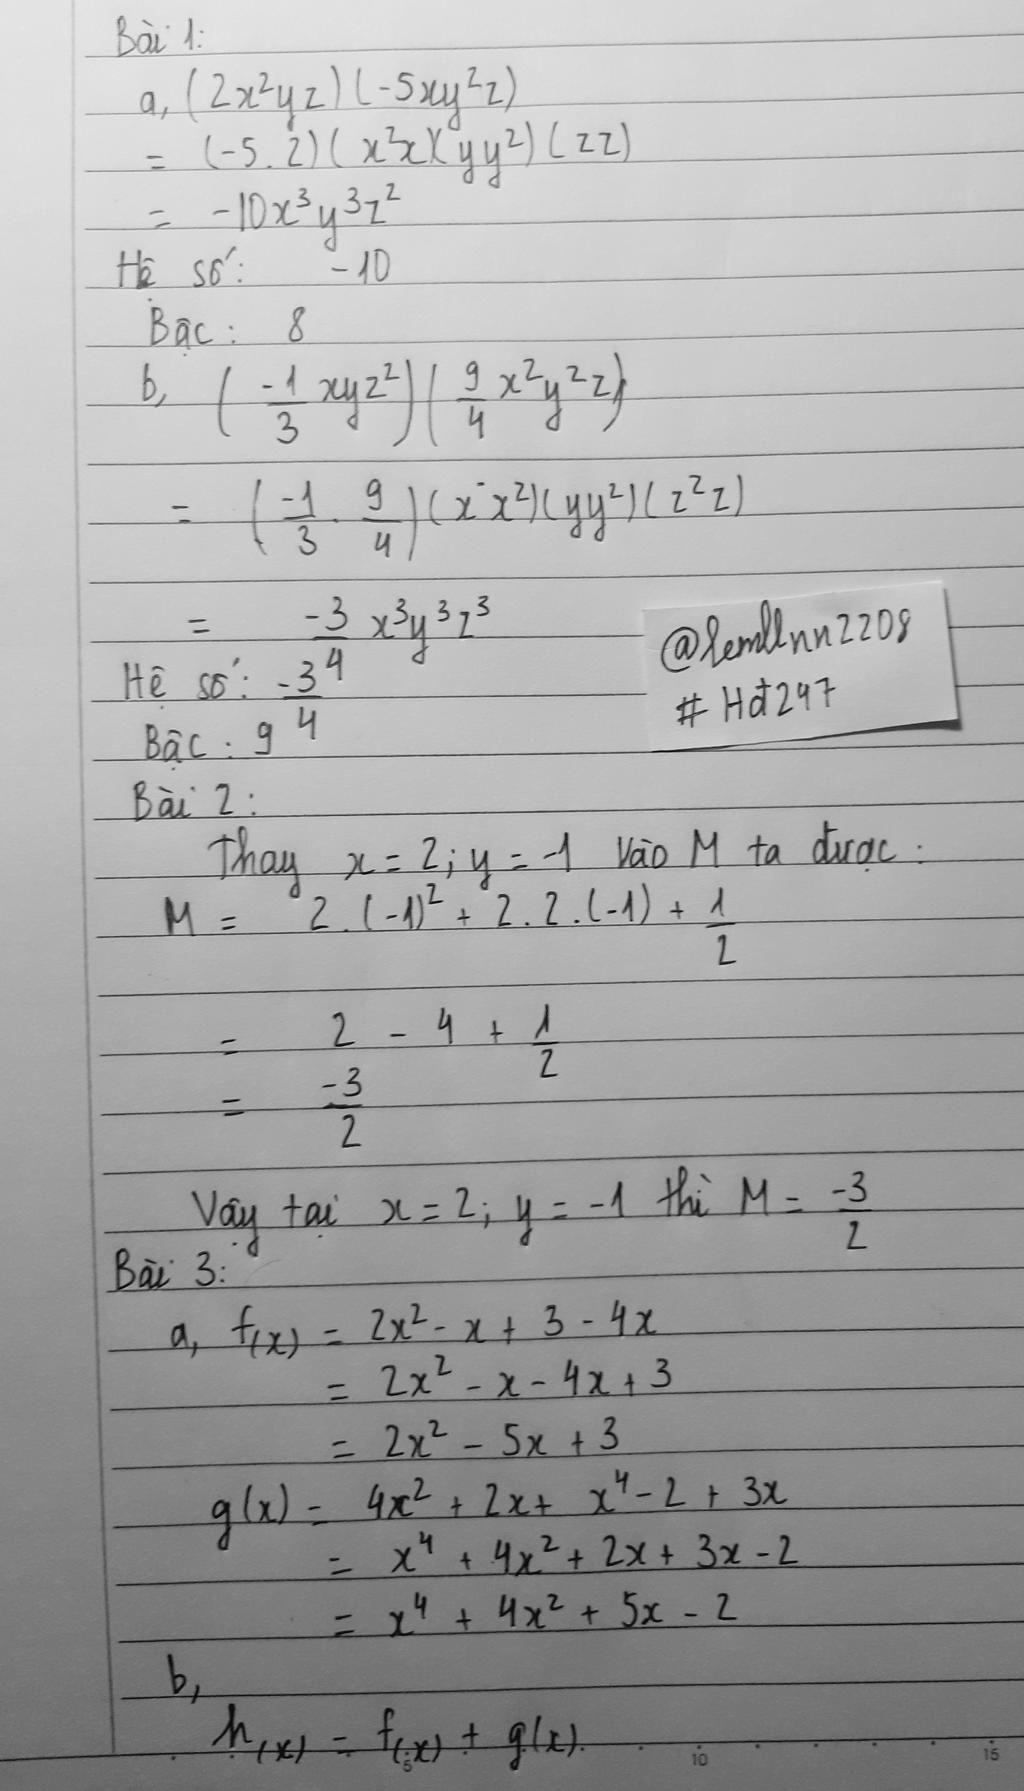 Bài 1:
a, (2x²yz)(-5xy²z)
= (-5.2)(x²x)(yy²)(zz)
= -10x³y³z²
Hệ số: -10
Bậc: 8
b, (-1/3 xyz²)(9/4 x²y²z)
= (-1/3 . 9/4)(x x²)(yy²)(z²z)
= -3/4 x³y³z³
Hệ số: -3/4
Bậc: 9
@lemllnn2208
#Hđ247
Bài 2:
Thay x = 2; y = -1 vào M ta được:
M = 2.(-1)² + 2.2.(-1) + 1/2
= 2 - 4 + 1/2
= -3/2
Vậy tại x = 2; y = -1 thì M = -3/2
Bài 3:
a, f(x) = 2x² - x + 3 - 4x
= 2x² - x - 4x + 3
= 2x² - 5x + 3
g(x) = 4x² + 2x + x⁴ - 2 + 3x
= x⁴ + 4x² + 2x + 3x - 2
= x⁴ + 4x² + 5x - 2
b,
h(x) = f(x) + g(x)
5 10 15